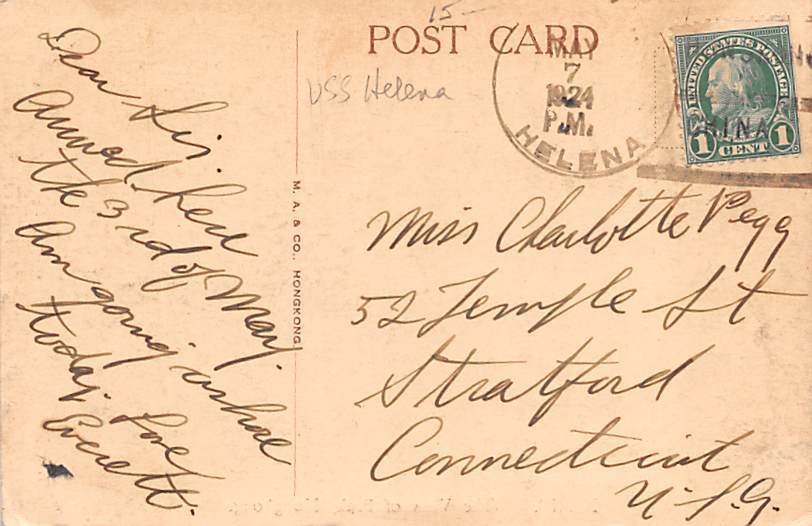 15-
POST CARD
USS Helena
MAY
7
1924
P.M.
HELENA
UNITED STATES POSTAGE
CHINA
1 CENT 1
Dear Sis.
Arrived here
the 3rd of May.
Am going ashore
today.
Love
Everett.
M. A. & CO., HONGKONG
Miss Charlotte Pegg
52 Temple St
Stratford
Connecticut
U.S.A.